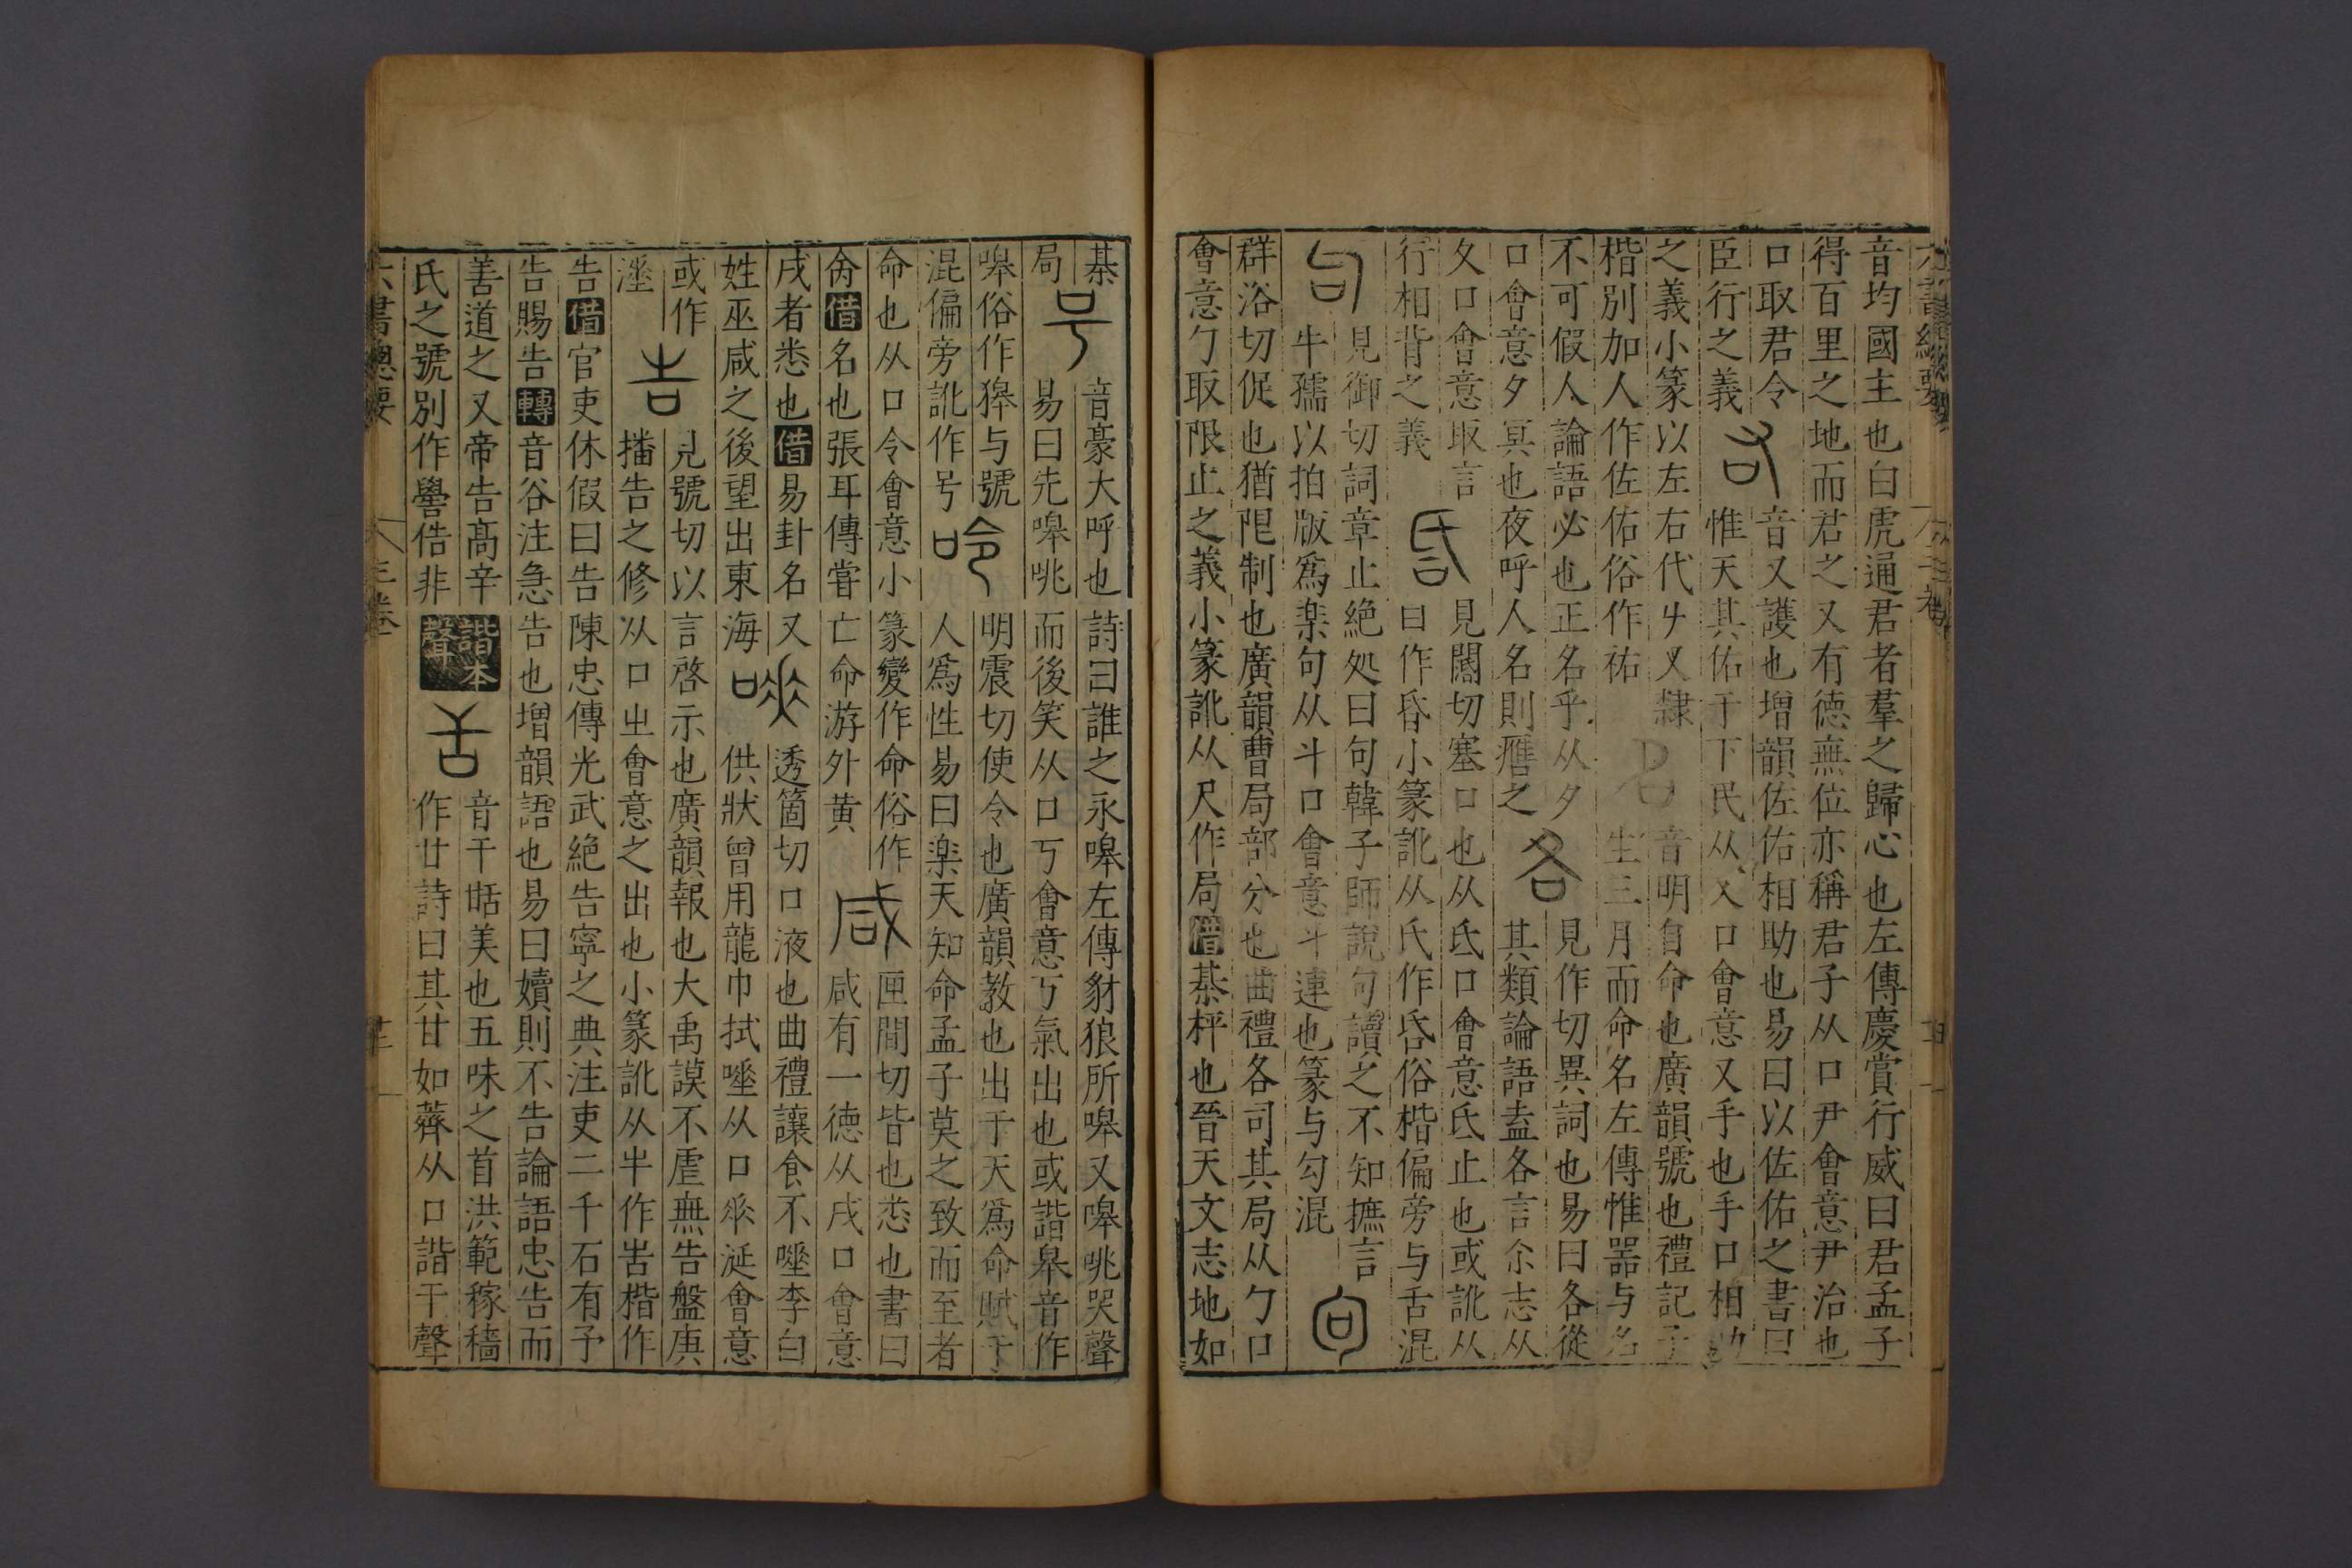 六書緫要
音均國主也白虎通君者羣之歸心也左傳慶賞行威曰君孟子
得百里之地而君之又有德無位亦稱君子从口尹會意尹治也
口取君令音又護也增韻佐佑相助也易曰以佐佑之書曰
臣行之義右惟天其佑于下民从又口會意又手也手口相助
之義小篆以左右代𠂇又隸音明自命也廣韻號也禮記子
楷別加人作佐佑俗作祐名生三月而命名左傳惟器与名
不可假人論語必也正名乎从夕見作切異詞也易曰各從
口會意夕冥也夜呼人名則譍之各其類論語盍各言尒志从
夂口會意取言見闊切塞口也从氐口會意氐止也或訛从
行相背之義曰作昏小篆訛从氏作𠯑俗楷偏旁与舌混
句見御切詞章止絶処曰句韓子師說句讀之不知摭言
牛孺以拍版爲楽句从丩口會意丩連也篆与勾混
群浴切促也猶限制也廣韻曹局部分也曲禮各司其局从勹口
會意勹取限止之義小篆訛从尺作局借棊枰也晉天文志地如
棊音豪大呼也詩曰誰之永嘷左傳豺狼所嘷又嘷咷哭聲
局号易曰先嘷咷而後笑从口丂會意丂氣出也或諧皋音作
嘷俗作獋与號明震切使令也廣韻教也出于天爲命賦于
混偏旁訛作号命人爲性易曰楽天知命孟子莫之致而至者
命也从口令會意小篆變作命俗作匣間切皆也悉也書曰
肏借名也張耳傳嘗亡命游外黄咸咸有一德从戌口會意
戌者悉也借易卦名又透箇切口液也曲禮讓食不唾李白
姓巫咸之後望出東海供狀曾用龍巾拭唾从口㳄涎會意
或作見號切以言啓示也廣韻報也大禹謨不虐無告盤庚
涶告播告之修从口㞢會意之出也小篆訛从牛作告楷作
告借官吏休假曰告陳忠傳光武絶告寧之典注吏二千石有予
告賜告轉音谷注急告也增韻語也易曰瀆則不告論語忠告而
善道之又帝告高辛音干甛美也五味之首洪範稼穡
氏之號別作嚳俈非諧本聲作甘詩曰其甘如薺从口諧干聲
六書緫要 三卷